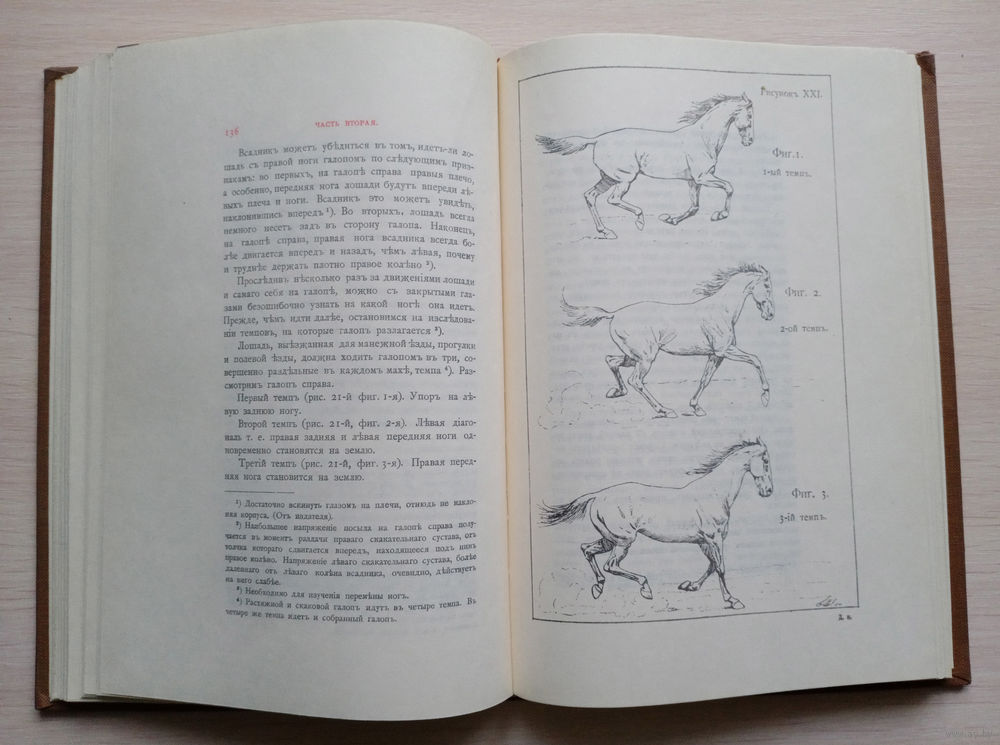 136
ЧАСТЬ ВТОРАЯ.
Всадникъ можетъ убѣдиться въ томъ, идетъ-ли ло-
шадь съ правой ноги галопомъ по слѣдующим приз-
накамъ: во первыхъ, на галопѣ справа правыя плечо,
а особенно, передняя нога лошади будутъ впереди лѣ-
выхъ плеча и ноги. Всадникъ это можетъ увидѣть,
наклонившись впередъ ¹). Во вторыхъ, лошадь всегда
немного несетъ задъ въ сторону галопа. Наконецъ,
на галопѣ справа, правая нога всадника всегда бо-
лѣе двигается впередъ и назадъ, чѣмъ лѣвая, почему
и труднѣе держать плотно правое колѣно ²).
Прослѣдивъ нѣсколько разъ за движенiями лошади
и самаго себя на галопѣ, можно съ закрытыми гла-
зами безошибочно узнать на какой ногѣ она идетъ.
Прежде, чѣмъ идти далѣе, остановимся на изслѣдова-
нiи темповъ, на которые галопъ разлагается ³).
Лошадь, выѣзжанная для манежной ѣзды, прогулки
и полевой ѣзды, должна ходить галопомъ въ три, со-
вершенно раздѣльные въ каждомъ махѣ, темпа ⁴). Раз-
смотримъ галопъ справа.
Первый темпъ (рис. 21-й фиг. 1-я). Упоръ на лѣ-
вую заднюю ногу.
Второй темпъ (рис. 21-й, фиг. 2-я). Лѣвая дiаго-
наль т. е. правая задняя и лѣвая передняя ноги од-
новременно становятся на землю.
Третiй темпъ (рис. 21-й, фиг. 3-я). Правая перед-
няя нога становится на землю.
¹) Достаточно вскинуть глазомъ на плечи, отнюдь не накло-
няя корпуса. (Отъ издателя).
²) Наибольшее напряженiе посыла на галопѣ справа полу-
чается въ моментъ раздачи праваго скакательнаго сустава, отъ
толчка котораго сдвигается впередъ, находящееся подъ нимъ
правое колѣно. Напряженiе лѣваго скакательнаго сустава, болѣе
далекаго отъ лѣваго колѣна всадника, очевидно, дѣйствуетъ
на него слабѣе.
³) Необходимо для изученiя перемѣны ногъ.
⁴) Растяжной и скаковой галопъ идутъ въ четыре темпа. Въ
четыре же темпа идетъ и собранный галопъ.
Рисунокъ XXI.
Фиг. 1.
1-ый темпъ.
Фиг. 2.
2-ой темпъ.
Фиг. 3.
3-iй темпъ.